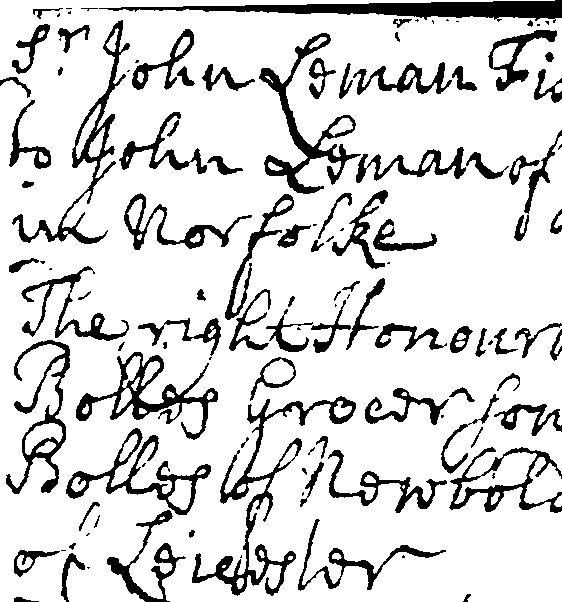 Sr John Leman Fis
to John Leman of
in Norfolke
The right Honour
Bolles Grocer son
Bolles of Newbold
of Leicester